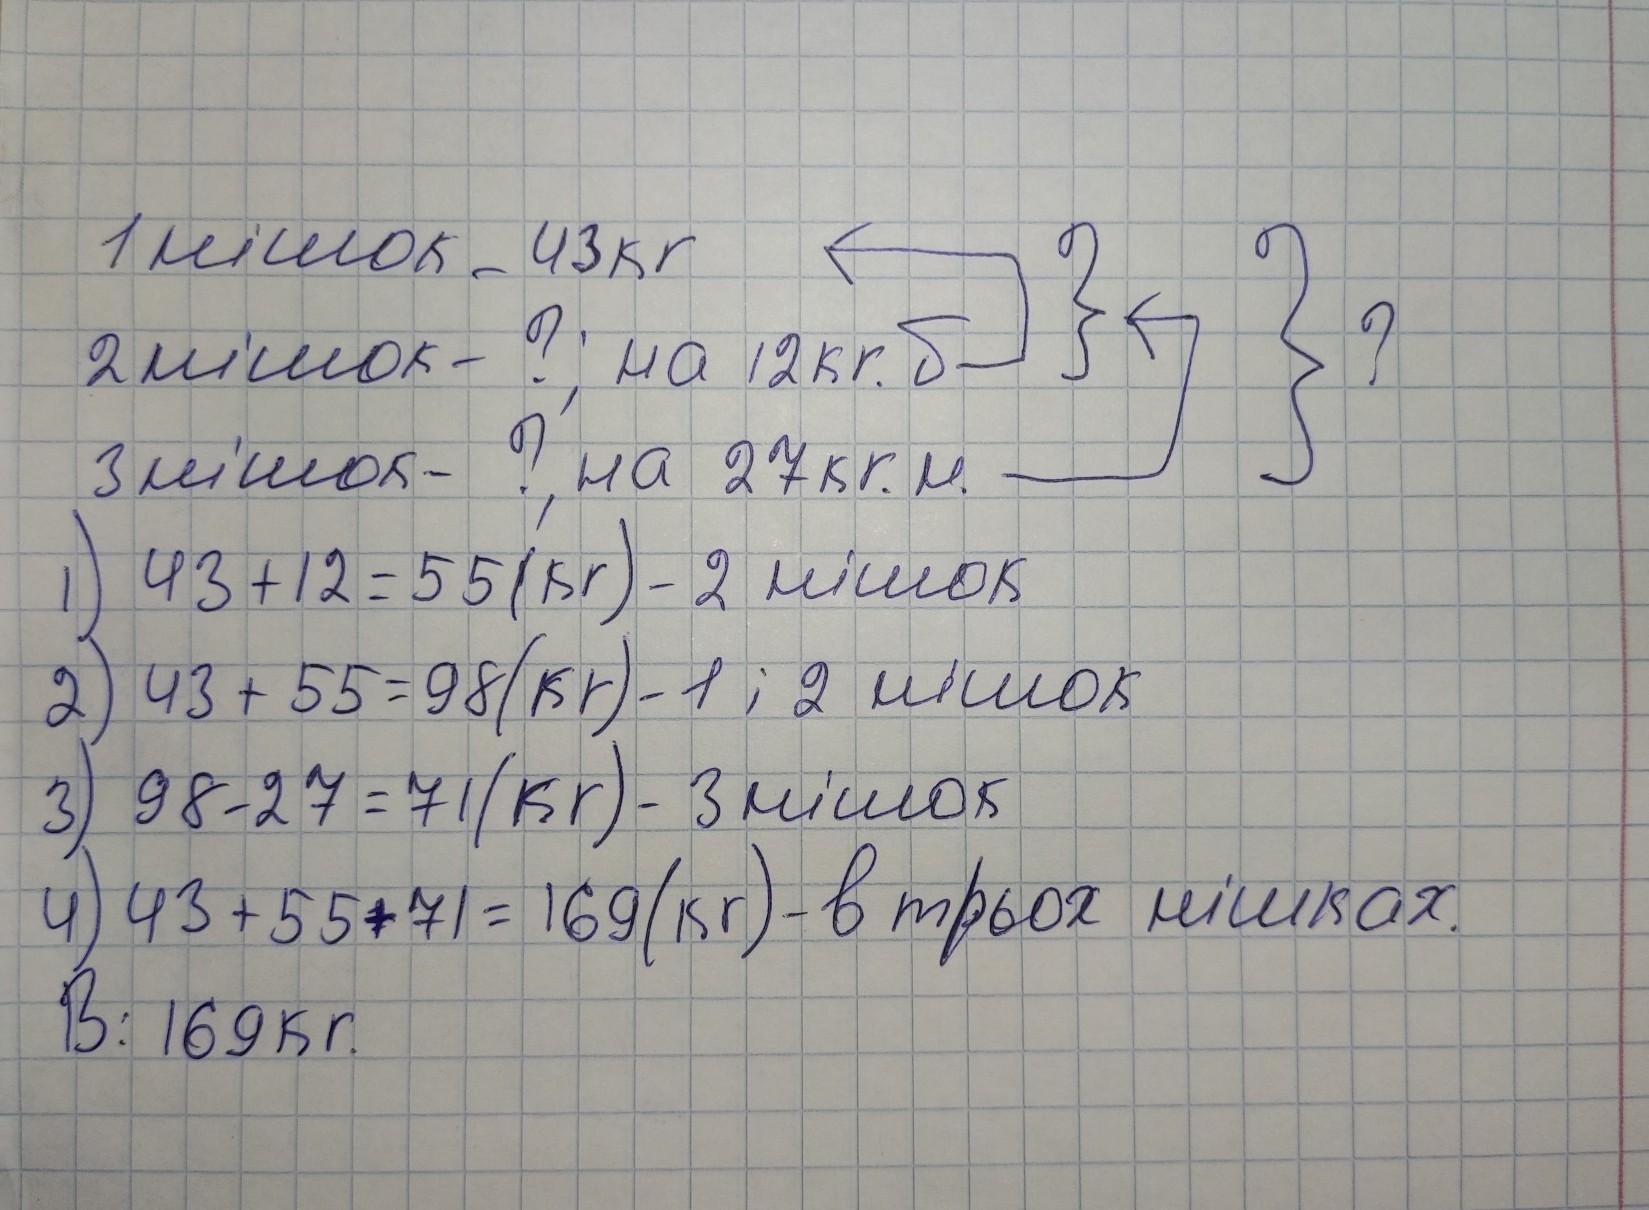 1 мішок - 43кг } } ?
2 мішок - ?; на 12кг. б
3 мішок - ?, на 27кг. м.
1) 43+12=55(кг)-2 мішок
2) 43+55=98(кг)-1 і 2 мішок
3) 98-27=71(кг)-3 мішок
4) 43+55+71=169(кг)-в трьох мішках.
В: 169кг.